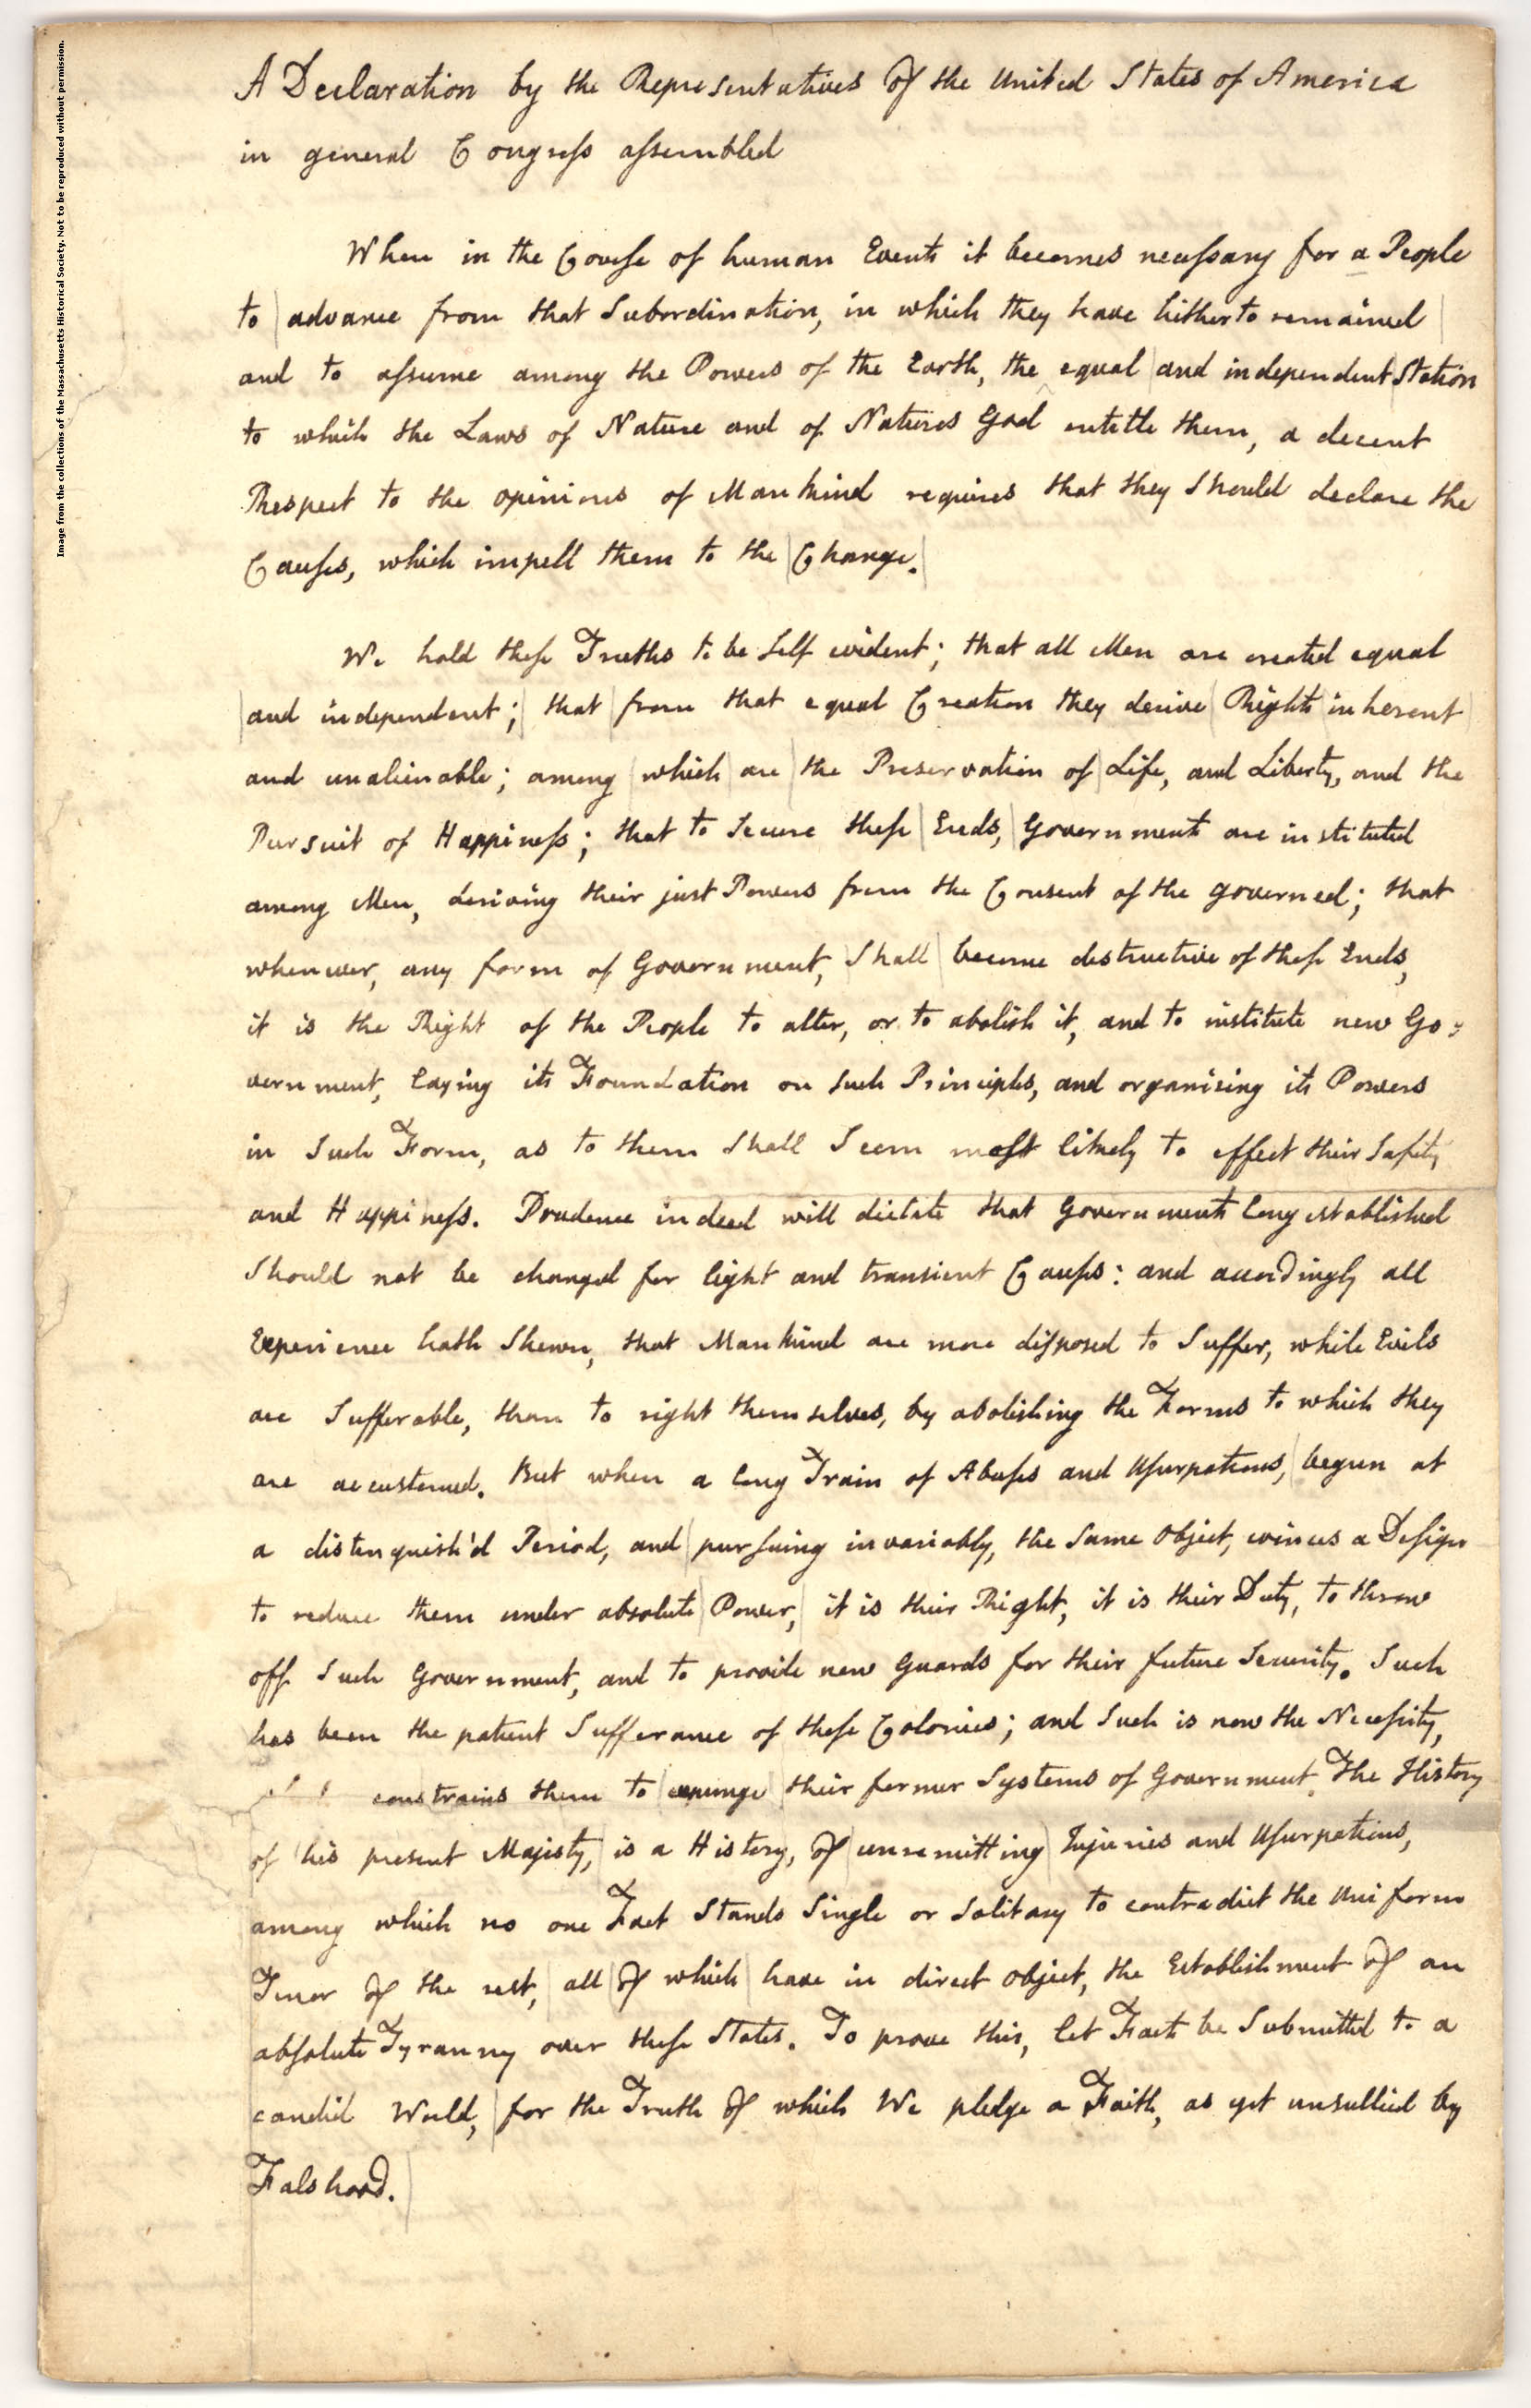 Image from the collections of the Massachusetts Historical Society. Not to be reproduced without permission.
A Declaration by the Representatives of the United States of America
in general Congreſs aſsembled
When in the Courſe of human Events it becomes neceſsary for a People
to advance from that Subordination, in which they have hitherto remained
and to aſsume among the Powers of the Earth, the equal and independent Station
to which the Laws of Nature and of Natures God entitle them, a decent
Respect to the opinions of Mankind requires that they Should declare the
Cauſes, which impell them to the Change.
We hold theſe Truths to be Self evident; that all Men are created equal
and independent; that from that equal Creation they derive Rights inherent
and unalienable; among which are the Preservation of Life, and Liberty, and the
Pursuit of Happineſs; that to Secure theſe Ends, Governments are instituted
among Men, deriving their just Powers from the Consent of the governed; that
whenever, any form of Government, Shall become destructive of theſe Ends,
it is the Right of the People to alter, or to abolish it, and to institute new Go-
vernment, laying its Foundation on Such Principles, and organising its Powers
in Such Form, as to them Shall Seem moſt likely to effect their Safety
and Happineſs. Prudence indeed will dictate that Governments long established
Should not be changed for light and transient Cauſes: and accordingly all
Experience hath Shewn, that Mankind are more diſposed to Suffer, while Evils
are Sufferable, than to right themselves, by abolishing the Forms to which they
are accustomed. But when a long Train of Abuſes and Uſurpations, begun at
a distinguish'd Period, and purſuing invariably, the Same Object, evinces a Deſign
to reduce them under absolute Power, it is their Right, it is their Duty, to throw
off Such Government, and to provide new Guards for their future Security. Such
has been the patient Sufferance of theſe Colonies; and Such is now the Neceſsity,
constrains them to expunge their former Systems of Government. The History
of his present Majesty, is a History, of unremitting Injuries and Uſurpations,
among which no one Fact Stands Single or Solitary to contradict the Uniform
Tenor of the rest, all of which have in direct object, the Establishment of an
abſolute Tyranny over theſe States. To prove this, let Facts be Submitted to a
candid World, for the Truth of which We pledge a Faith, as yet unsullied by
Falshood.